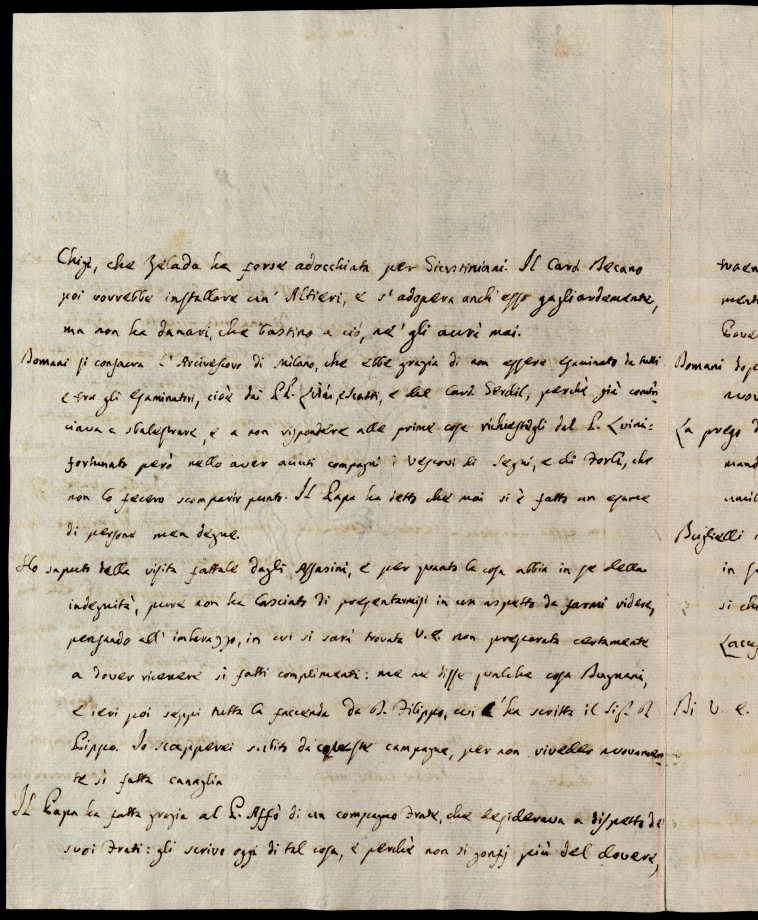 Chigi, che Zelada ha forse adocchiata per Giustiniani. Il Card. Decano
poi vorrebbe installare un' Altieri, e s' adopera anch' esso gagliardamente,
ma non ha danari, che bastino a ciò, ne' gli avrà mai.
Domani si consacra l' Arcivescovo di Milano, che ebbe grazia di non essere esaminato da tutti
e tre gli esaminatori, cioè dai PP. e dal Card. Gerdil, perchè già comin
ciava a sbalestrare, e a non rispondere alle prime cose richiestegli dal P.
fortunato però nello aver avuti compagni i Vescovi di Segni, e di Forlì, che
non lo fecero scomparir punto. Il Papa ha detto che mai si è fatto un esame
di persone men degne.
Ho saputo della visita fattale dagli Assasini, e per quanto la cosa abbia in se della
indegnità, pure non ha lasciato di presentarmisi in un aspetto da farmi ridere,
pensando all' imbarazzo, in cui si sarà trovata V. E. non preparata certamente
a dover ricevere sì fatti complimenti: me ne disse qualche cosa Bugnani,
e ieri poi seppi tutta la facenda da D. Filippo, cui l' ha scritta il
Lippo. Io scapperei subito da coteste campagne, per non rivedere nuovamen
te sì fatta canaglia
Il Papa ha fatta grazia al P. Affò di un compagno Frate, che desiderava a dispetto de'
suoi Frati: gli scrivo oggi di tal cosa, e perchè non si gonfj più del dovere,
ment
Domani dop
La prego d
mand
in
si ch
Di V. E.